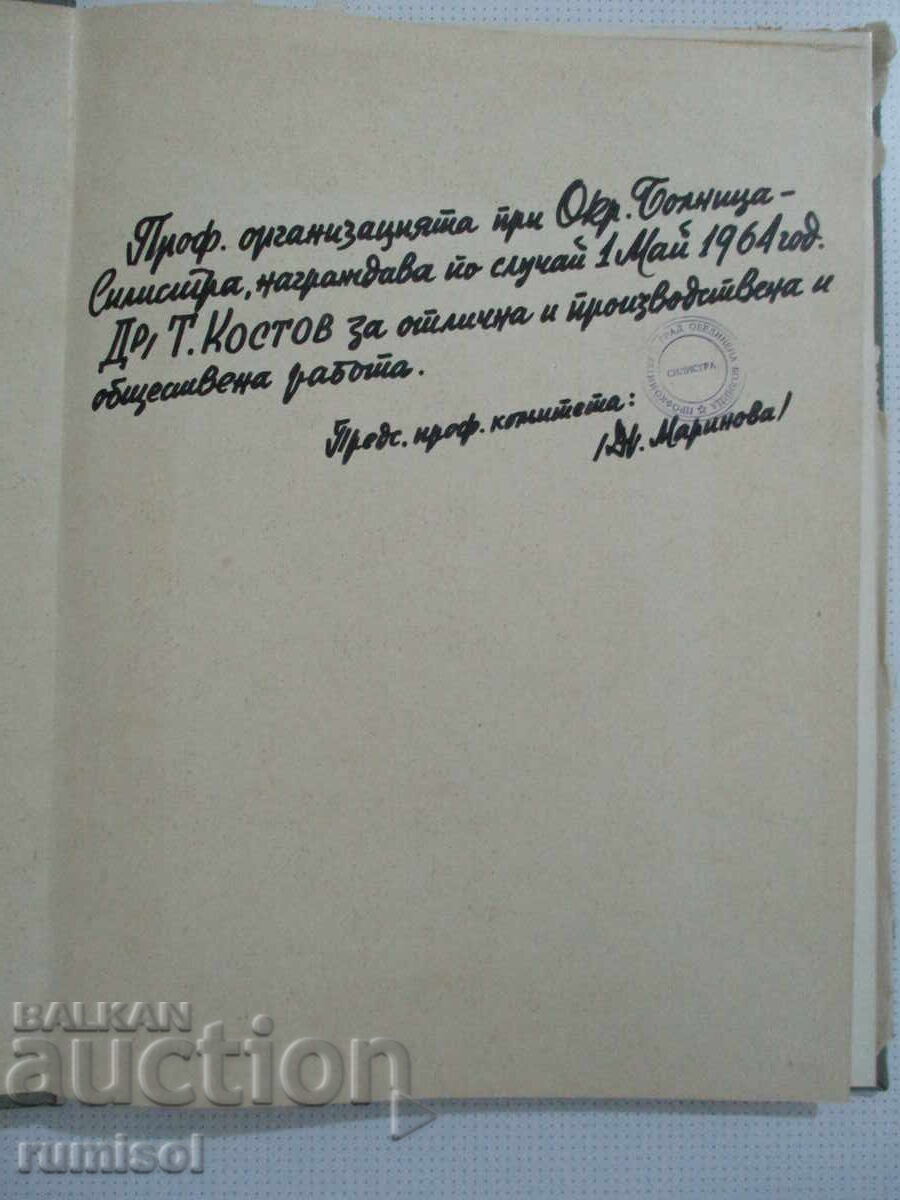 Проф. организацията при Окр. Болница -
Силистра, награждава по случай 1 Май 1964 год.
Др, Т. КОСТОВ за отлична и производствена и
обществена работа.
Предс. проф. комитета:
/Дк. Маринова/
ГРАД ОБЕДИНЕНА БОЛНИЦА ★ ПРОФКОМИТЕТ
СИЛИСТРА
BALKAN
auction
rumisol